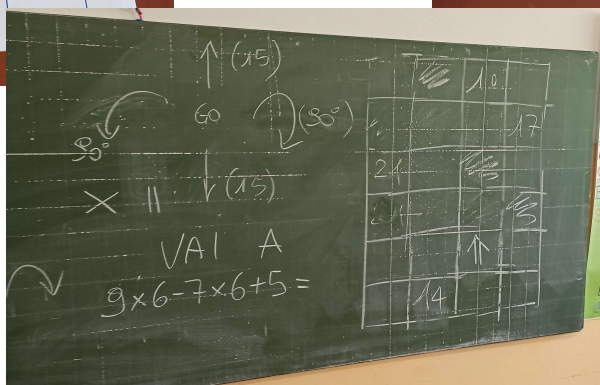 (15)
GO
90°
(90°)
(15)
X ||
VAI A
9×6-7×6+5=
10
17
21
14